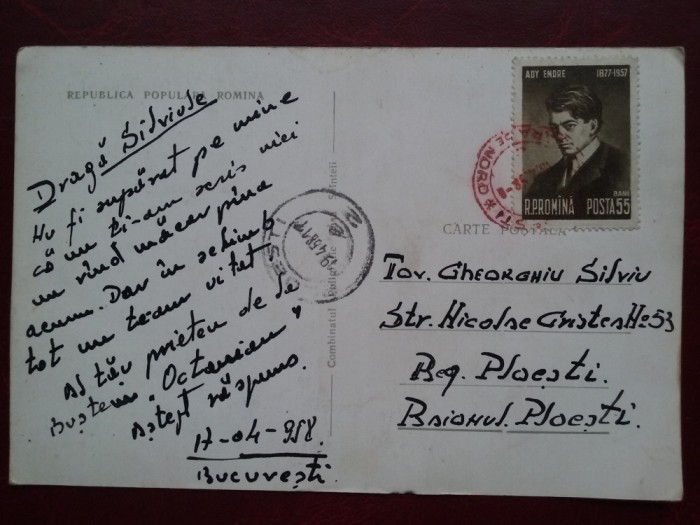 REPUBLICA POPULARA ROMINA
Dragă Silviule
Nu fi supărat pe mine
că nu ți-am scris nici
un rînd măcar pîna
acum. Dar în schimb
tot nu te-am uitat
Al tău prieten de la
Bușteni "Octavian"
Aștept răspuns.
17-04-958.
București.
Combinatul Poligrafic
ADY ENDRE 1877-1957
BANI
R.P.ROMÎNĂ POSTA 55
NORD
CARTE POSTALA
Tov. Gheorghiu Silviu
Str. Nicolae Cristea No 53
Reg. Ploești.
Raionul Ploești.